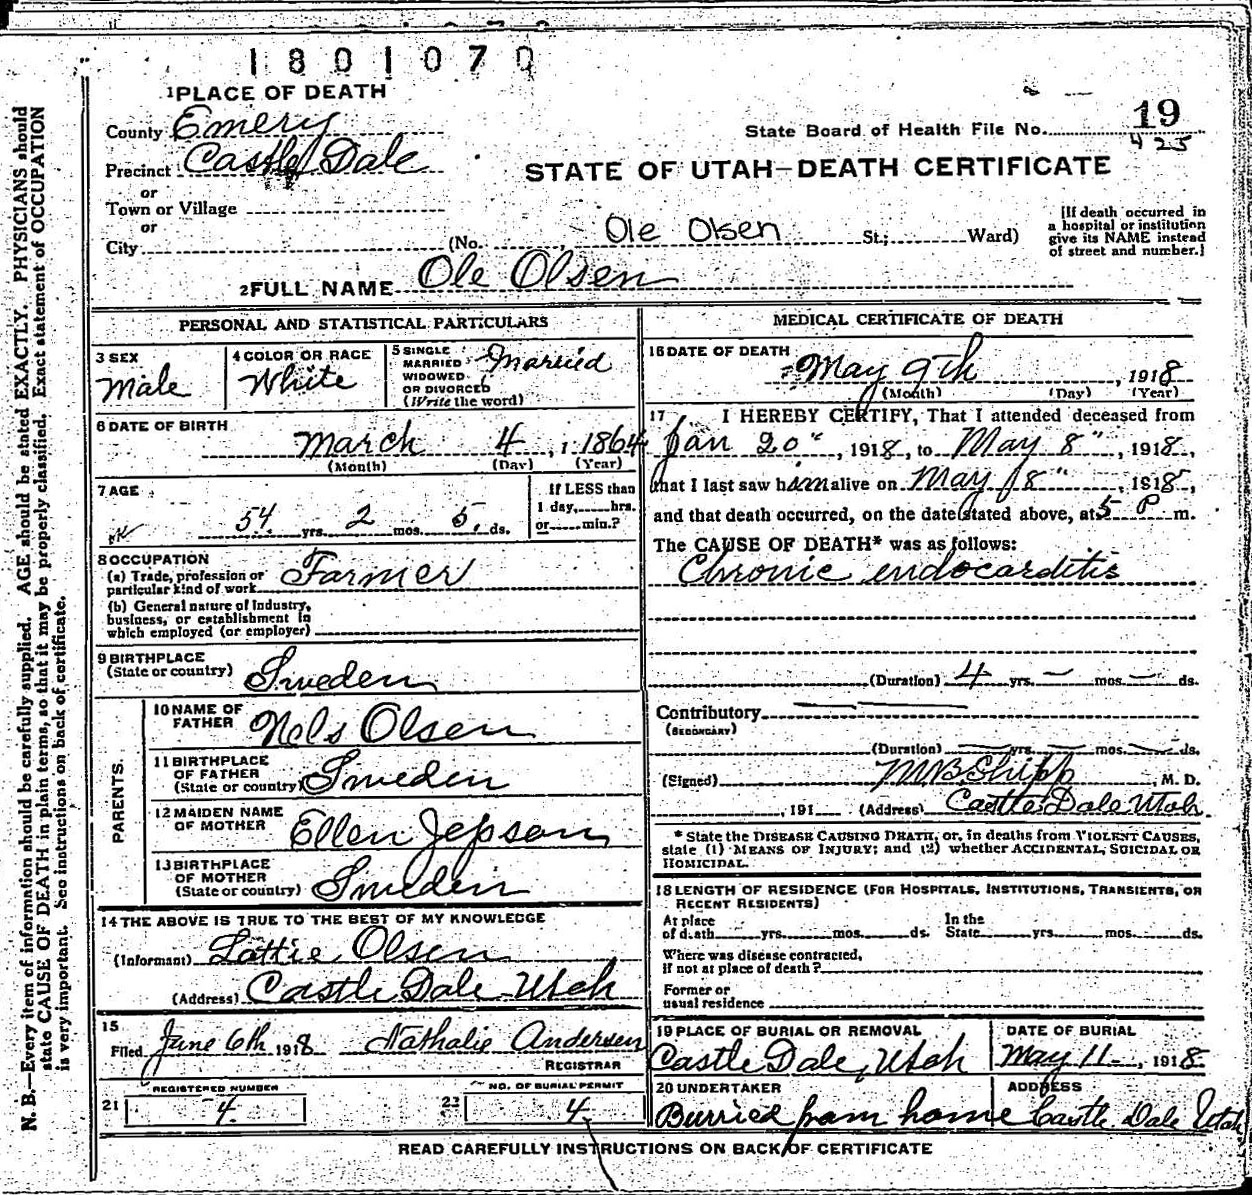 1801070
1 PLACE OF DEATH
County Emery
Precinct Castle Dale
or
Town or Village
or
City (No. Ole Olsen St.; Ward)
State Board of Health File No. 19
425
STATE OF UTAH—DEATH CERTIFICATE
[If death occurred in
a hospital or institution
give its NAME instead
of street and number.]
2 FULL NAME Ole Olsen
PERSONAL AND STATISTICAL PARTICULARS
3 SEX
Male
4 COLOR OR RACE
White
5 SINGLE
MARRIED
WIDOWED
OR DIVORCED
(Write the word)
Married
6 DATE OF BIRTH
March 4, 1 1864
(Month) (Day) (Year)
7 AGE
54 yrs. 2 mos. 5 ds.
If LESS than
1 day, hrs.
or min.?
8 OCCUPATION
(a) Trade, profession or
particular kind of work Farmer
(b) General nature of Industry,
business, or establishment in
which employed (or employer)
9 BIRTHPLACE
(State or country) Sweden
PARENTS.
10 NAME OF
FATHER Nels Olsen
11 BIRTHPLACE
OF FATHER
(State or country) Sweden
12 MAIDEN NAME
OF MOTHER Ellen Jepson
13 BIRTHPLACE
OF MOTHER
(State or country) Sweden
14 THE ABOVE IS TRUE TO THE BEST OF MY KNOWLEDGE
(Informant) Lottie Olsen
(Address) Castle Dale Utah
15
Filed June 6th 1918 Nathalie Andersen
REGISTRAR
REGISTERED NUMBER
21 4.
NO. OF BURIAL PERMIT
22 4.
MEDICAL CERTIFICATE OF DEATH
16 DATE OF DEATH
May 9th, 1918
(Month) (Day) (Year)
17 I HEREBY CERTIFY, That I attended deceased from
Jan 20", 1918, to May 8", 1918,
that I last saw him alive on May 8", 1918,
and that death occurred, on the date stated above, at 5 P m.
The CAUSE OF DEATH* was as follows:
Chronic endocarditis
(Duration) 4 yrs. — mos. — ds.
Contributory
(SECONDARY)
(Duration) — yrs. — mos. — ds.
(Signed) M B Shipp M. D.
, 191 (Address) Castle Dale Utah
* State the DISEASE CAUSING DEATH, or, in deaths from VIOLENT CAUSES,
state (1) MEANS OF INJURY; and (2) whether ACCIDENTAL, SUICIDAL OR
HOMICIDAL.
18 LENGTH OF RESIDENCE (FOR HOSPITALS, INSTITUTIONS, TRANSIENTS, OR
RECENT RESIDENTS)
At place
of death yrs. mos. ds.
In the
State yrs. mos. ds.
Where was disease contracted,
if not at place of death?
Former or
usual residence
19 PLACE OF BURIAL OR REMOVAL
Castle Dale, Utah
DATE OF BURIAL
May 11, 1918
20 UNDERTAKER
Burried from home
ADDRESS
Castle Dale Utah
READ CAREFULLY INSTRUCTIONS ON BACK OF CERTIFICATE
N. B.—Every item of information should be carefully supplied. AGE should be stated EXACTLY. PHYSICIANS should
state CAUSE OF DEATH in plain terms, so that it may be properly classified. Exact statement of OCCUPATION
is very important. See instructions on back of certificate.